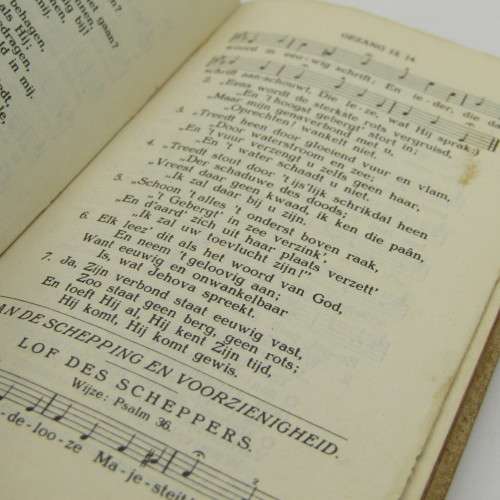 niet gaan?
als Hij;
bij!
gedragen,
rots;
in mij.
GEZANG 13 14
woord in eeu-wig schrift; En ie-der, die da
schrift aan-schouwt, Die le-ze, wat Hij sprak:
2. „Eens wordt de sterkste rots vergruisd,
„En 't hoogst gebergt' stort in;
„Maar mijn genaverbond met u,
„Oprechten! wankelt niet.
3. „Treedt heen door gloeiend vuur en vlam,
„Door waterstroom en zee;
„En 't vuur verzengt u zelfs geen haar,
„En 't water schaadt u niet.
4. „Treedt stout door 't ijs'lijk schrikdal heen
„Der schaduwe des doods;
„Vreest daar geen kwaad, ik ken die paân,
„Ik zal daar bij u zijn.
5. „Schoon 't alles 't onderst boven raak,
„'t Gebergt' in zee verzink',
„En d'aard' zich uit haar plaats verzett'
„Ik zal uw toevlucht zijn!"
6. Elk leez' dit als het woord van God,
En neem 't geloovig aan;
Want eeuwig en onwankelbaar
Is, wat Jehova spreekt.
7. Ja, Zijn verbond staat eeuwig vast,
Zoo staat geen berg, geen rots;
En toeft Hij al, Hij kent Zijn tijd,
Hij komt, Hij komt gewis.
AN DE SCHEPPING EN VOORZIENIGHEID.
LOF DES SCHEPPERS.
Wijze: Psalm 36.
-de-loo-ze Ma-je-steit